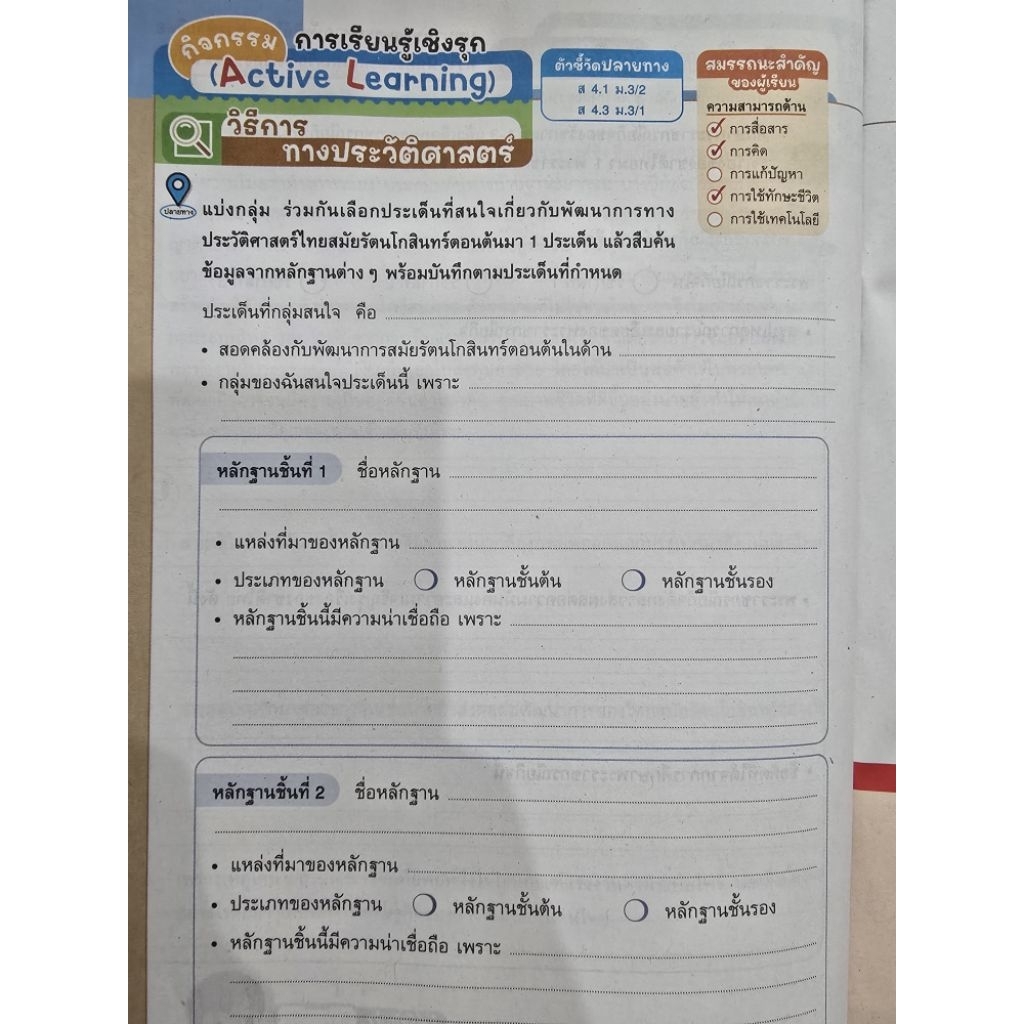 กิจกรรม การเรียนรู้เชิงรุก
(Active Learning)
วิธีการ
ทางประวัติศาสตร์
ตัวชี้วัดปลายทาง
ส 4.1 ม.3/2
ส 4.3 ม.3/1
สมรรถนะสำคัญ
ของผู้เรียน
ความสามารถด้าน
การสื่อสาร
การคิด
การแก้ปัญหา
การใช้ทักษะชีวิต
การใช้เทคโนโลยี
ปลายทาง
แบ่งกลุ่ม ร่วมกันเลือกประเด็นที่สนใจเกี่ยวกับพัฒนาการทาง
ประวัติศาสตร์ไทยสมัยรัตนโกสินทร์ตอนต้นมา 1 ประเด็น แล้วสืบค้น
ข้อมูลจากหลักฐานต่าง ๆ พร้อมบันทึกตามประเด็นที่กำหนด
ประเด็นที่กลุ่มสนใจ คือ
• สอดคล้องกับพัฒนาการสมัยรัตนโกสินทร์ตอนต้นในด้าน
• กลุ่มของฉันสนใจประเด็นนี้ เพราะ
หลักฐานชิ้นที่ 1 ชื่อหลักฐาน
• แหล่งที่มาของหลักฐาน
• ประเภทของหลักฐาน หลักฐานชั้นต้น หลักฐานชั้นรอง
• หลักฐานชิ้นนี้มีความน่าเชื่อถือ เพราะ
หลักฐานชิ้นที่ 2 ชื่อหลักฐาน
• แหล่งที่มาของหลักฐาน
• ประเภทของหลักฐาน หลักฐานชั้นต้น หลักฐานชั้นรอง
• หลักฐานชิ้นนี้มีความน่าเชื่อถือ เพราะ